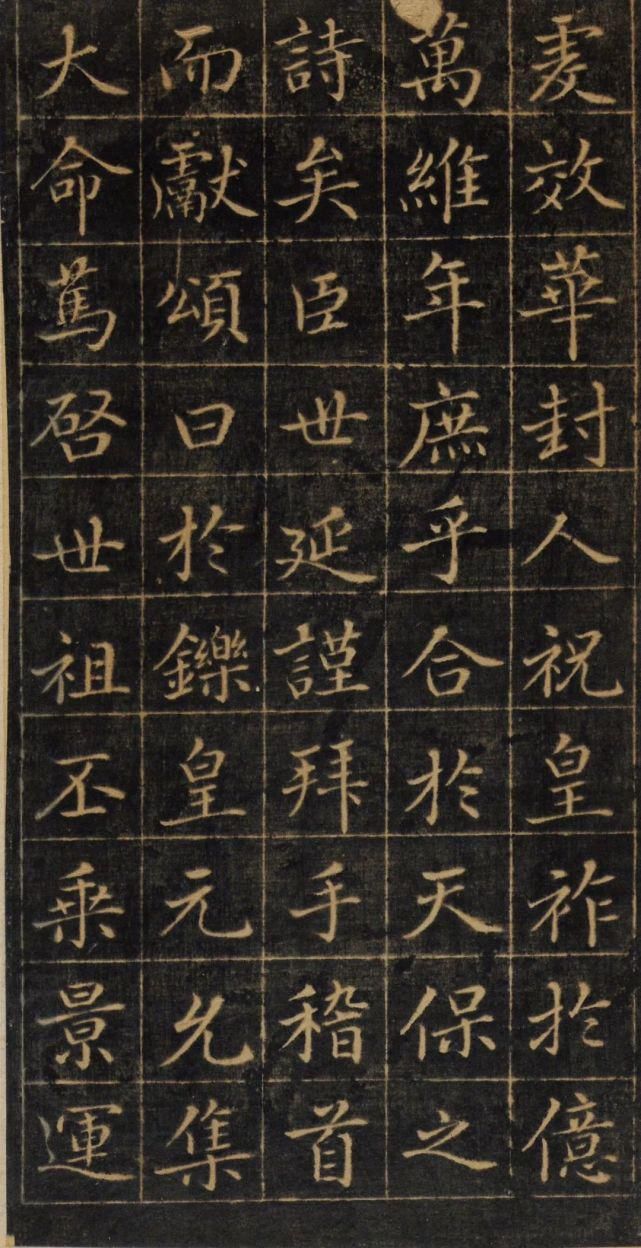 爰效華封人祝皇祚於億
萬維年庶乎合於天保之
詩矣臣世延謹拜手稽首
而獻頌曰於鑠皇元允集
大命篤啓世祖丕乗景運